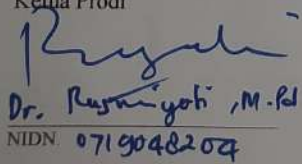 Ketua Prodi
Dr. Rusmiyati, M.Pd
NIDN. 0719048204